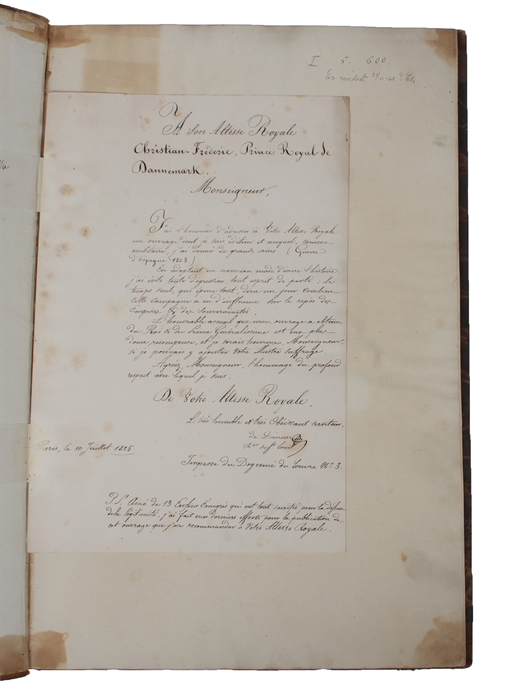 I 5. 600
A Son Altesse Royale
Christian-Fréderic, Prince Royal de
Dannemark.
Monseigneur,
J'ai l'honneur d'adresser à Votre Altesse Royale
un ouvrage dont je suis et auquel, comme
militaire, j'ai donné de grands soins (Guerre
d'Espagne 1823)
En adoptant un nouveau mode d'écrire l'histoire,
j'ai évité toute digression tout esprit de parti: le
temps seul, qui épure tout, dira un jour combien
cette campagne a eu d'influence sur le repos des
Empires & des Souverainetés.
L'honorable accueil que mon ouvrage a obtenu
du Roi & du Prince Généralissime est ma plus
douce récompense, et je serais heureux, Monseigneur,
si je pouvais y ajouter Votre illustre suffrage
Agréez, Monseigneur, l'hommage du profond
respect avec lequel je suis.
De Votre Altesse Royale.
Le très humble et très Obéissant serviteur
Paris, le 10 Juillet 1825.
Impasse du Doyenné du Louvre No. 3.
P.S. Ainé de 13 Emigrés qui ont tout sacrifié pour la défense
de la légitimité, j'ai fait mes derniers efforts pour la publication de
cet ouvrage que j'ose recommander à Votre Altesse Royale.